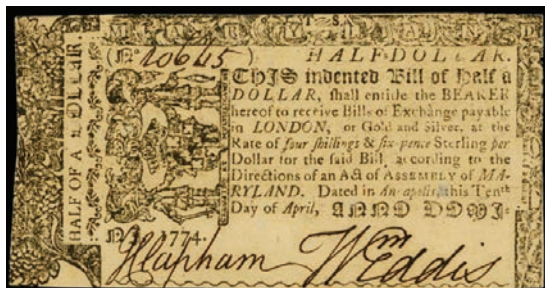 MARYLAND
HALF OF A DOLLAR
(No. 10645) HALF-DOLLAR.
THIS indented Bill of Half a
DOLLAR, shall entitle the BEARER
hereof to receive Bills of Exchange payable
in LONDON, or Gold and Silver, at the
Rate of four shillings & six-pence Sterling per
Dollar for the said Bill, according to the
Directions of an Act of ASSEMBLY of MA-
RYLAND. Dated in Annapolis this Tenth
Day of April, ANNO DOMI:
NI, 1774.
JClapham WmEddis